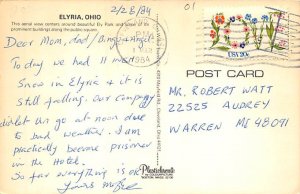 ELYRIA, OHIO
This aerial view centers around beautiful Ely Park and some of the prominent buildings along the public square.
2/28/84
01
Dear Mom, dad / Binga + Angel
To day we had 11 inch
Snow in Elyria + it is
still falling. Our company
didn't go at noon due
to bad weather. I am
practically become prisoner
in the Hotel.
So far everything is ok
Yours
1984
USA 20c
POST CARD
MR. ROBERT WATT
22525 AUDREY
WARREN MI 48091
Plastichrome